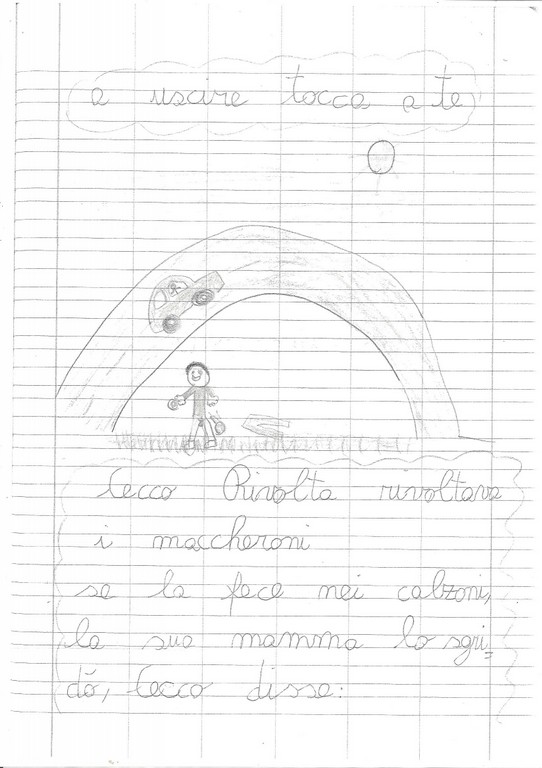 a uscire tocca a te
Cecco Rivolta rivoltava
i maccheroni
se la fece nei calzoni,
la sua mamma lo sgri=
dò, Cecco disse: